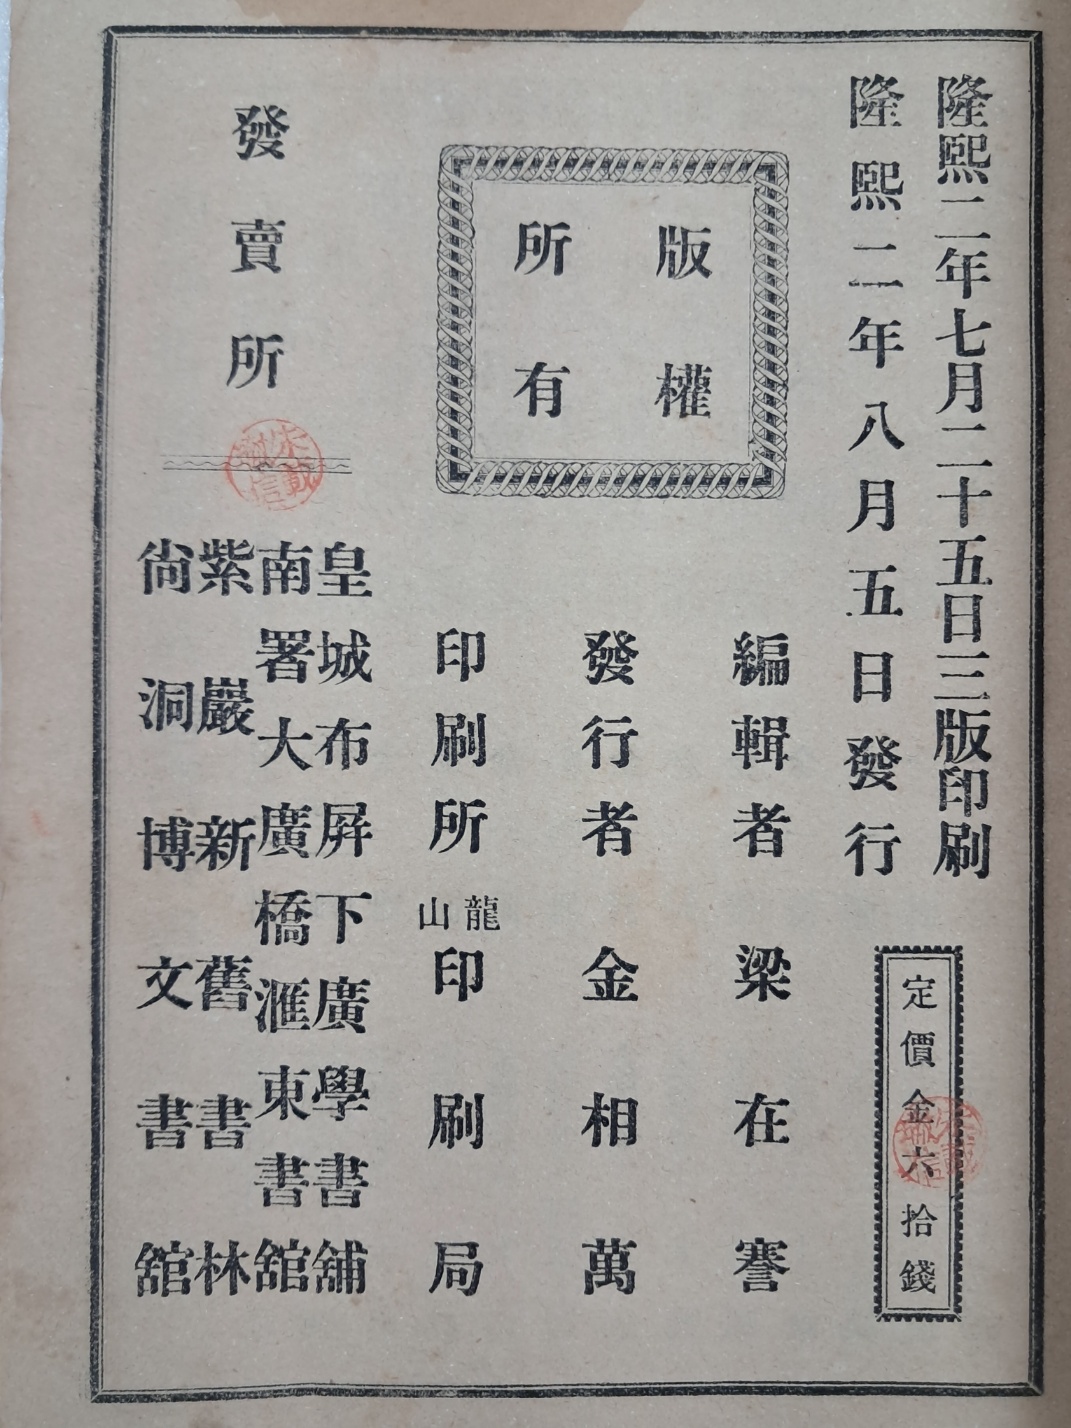 隆熙二年七月二十五日三版印刷
隆熙二年八月五日發行
定價金六拾錢
版權
所有
編輯者 梁在謇
發行者 金相萬
印刷所 龍山印刷局
發賣所
皇城布屛下廣學書舖
南署大廣橋滙東書館
紫巖新舊書林
尙洞博文書館